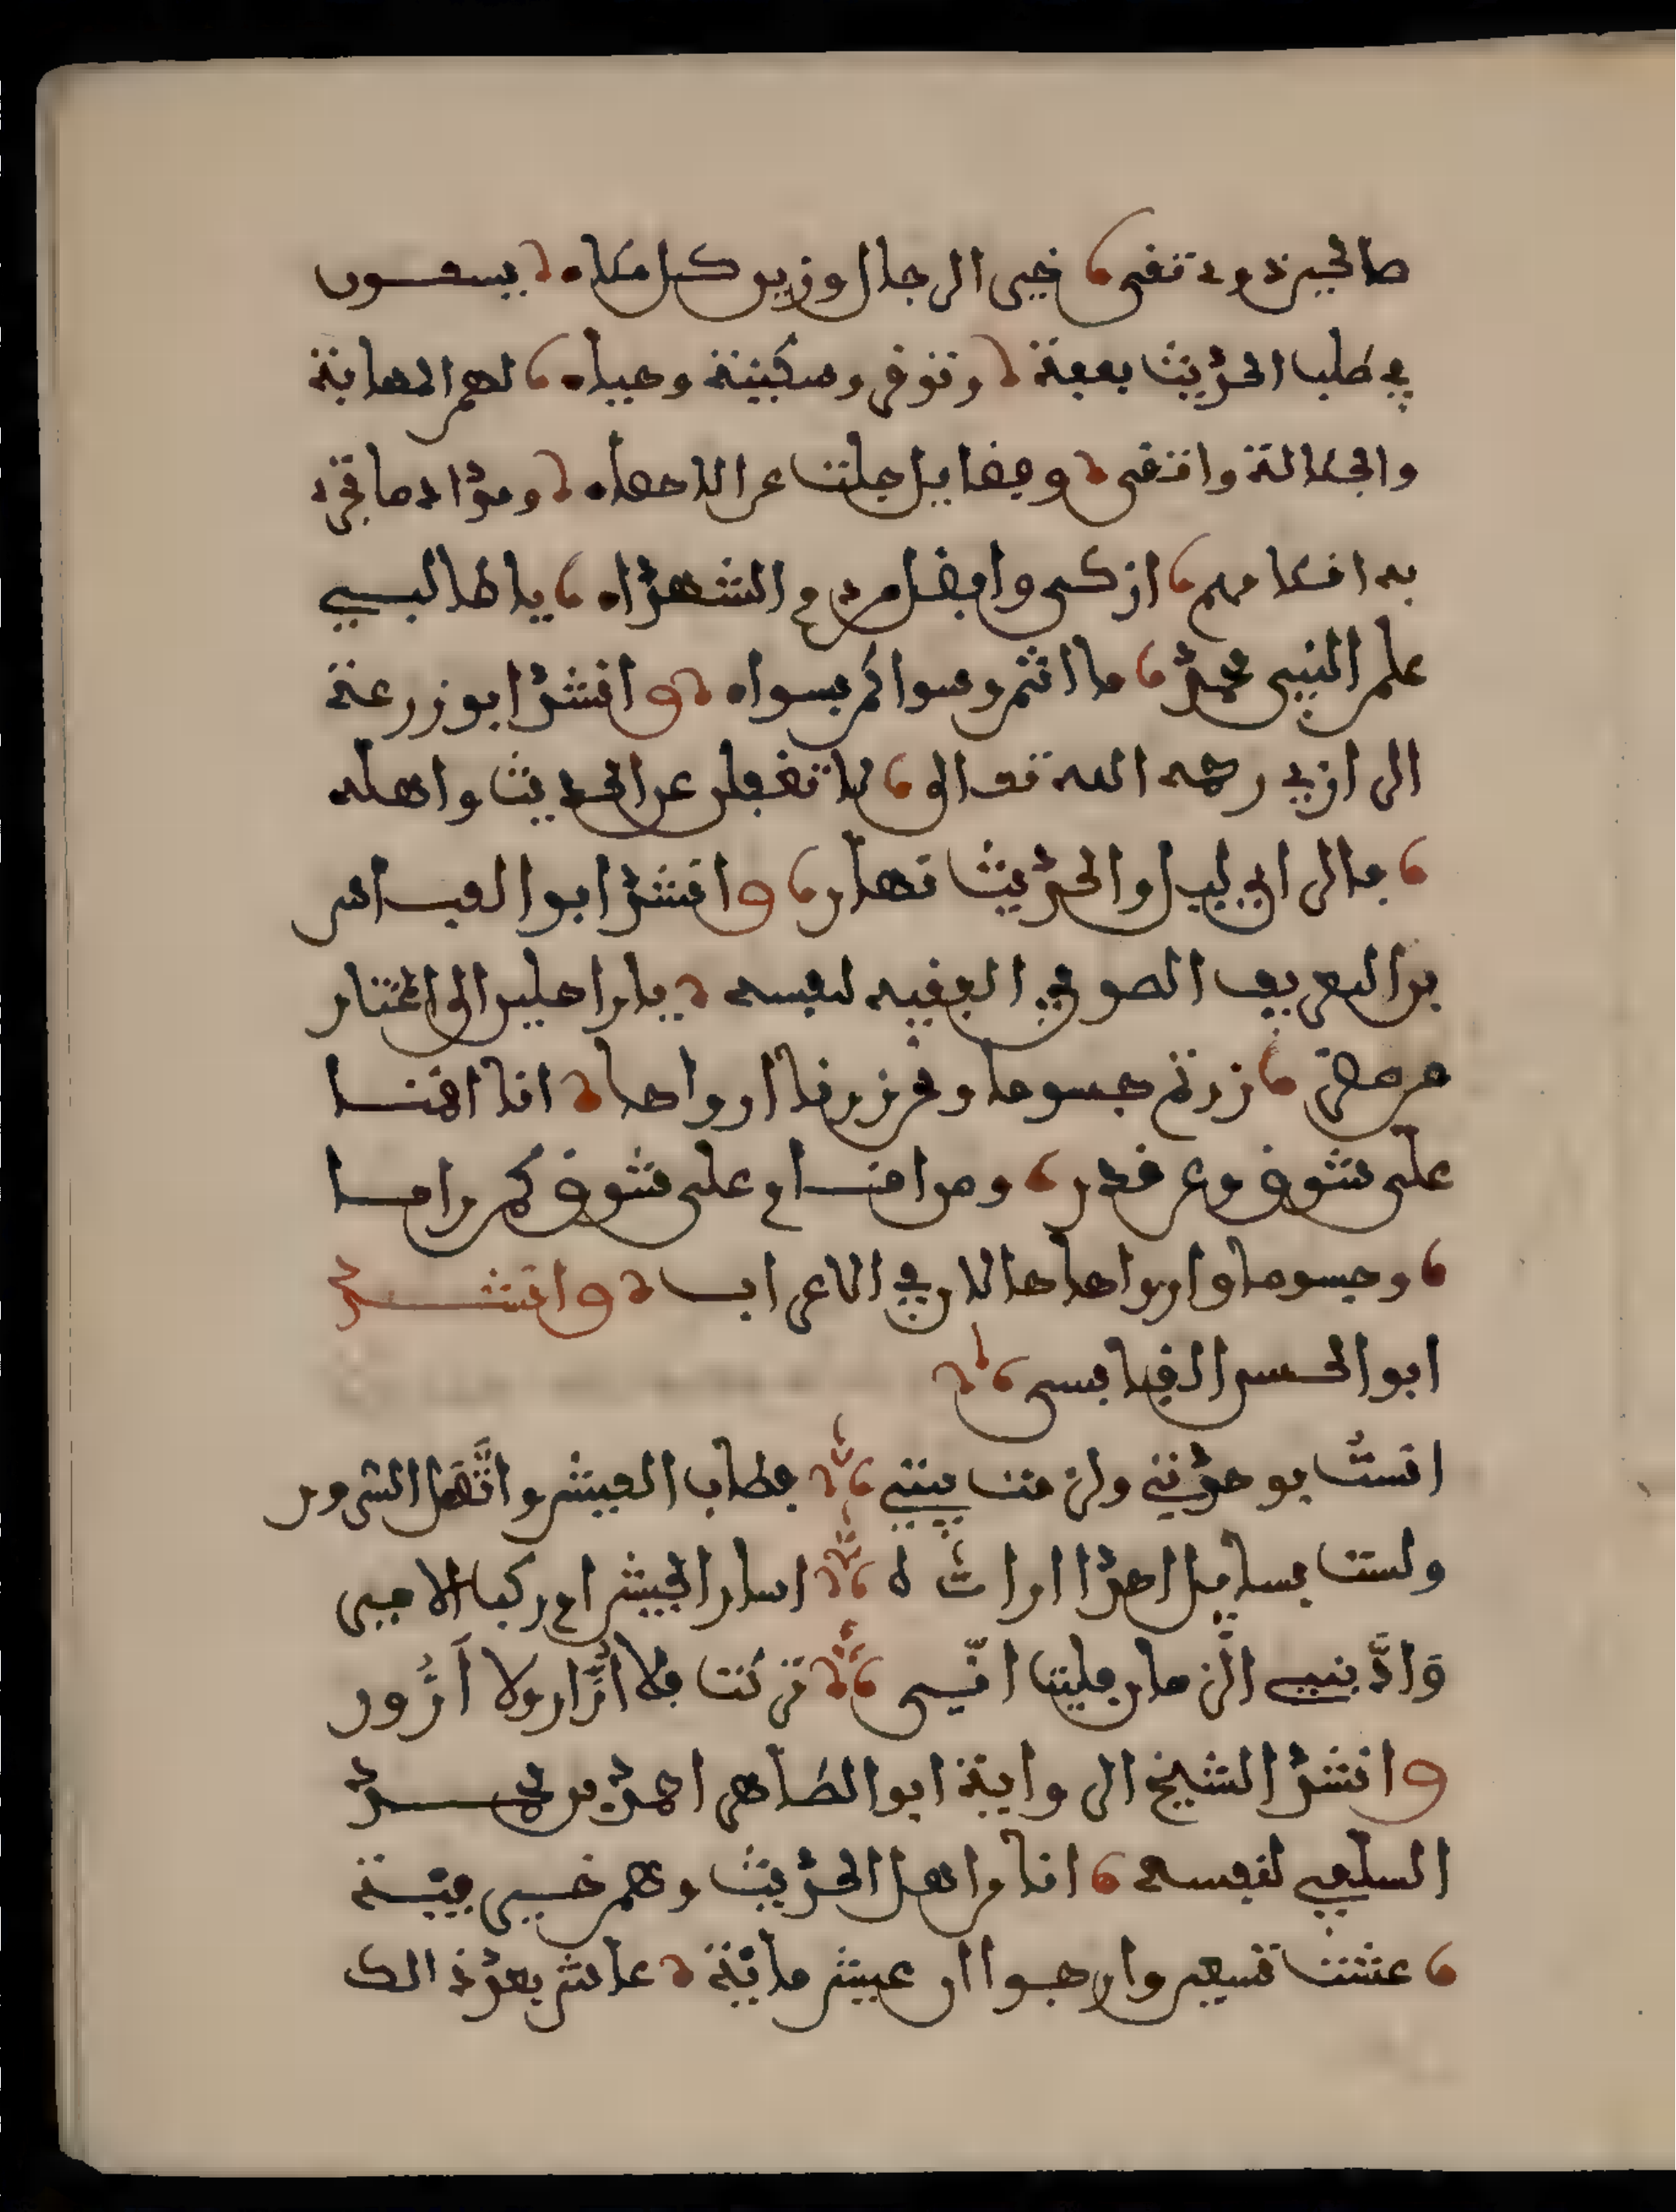 صالحين ذوي تقى خير الرجال وزين كل ملاء يسعون
في طلب الحديث بعفة وتوقر وسكينة وحياء لهم المهابة
والجلالة والتقى وفضايل جلت عن الاحصاء ومداد ما تجري
به اقلامهم ازكى وافضل من دم الشهداء يا طالبي
علم النبي محمد ما انتم وسواكم بسواء وانشد ابو زرعة
الرازي رحمه الله تعالى لا تغفلن عن الحديث واهله
فالراي ليل والحديث نهار وانشد ابوا العباس
بن العريف الصوفي الفقيه لنفسه يا راحلين الى المختار
من مضر زرتم جسوما وقد زرنا ارواحا انا اقمنا
على شوق وعن قدر ومن اقام على شوق كمن راحا
وجسوما وارواحا هالان في الاعراب وانشد
ابو الحسن القابسي
انستُ بوحدتي ولزمت بيتي فطاب العيش واتَّصل السرور
ولست بسايل احدا اراتْ لا اسار الجيش ام ركب الامير
وَادَّبني الزمان فليت انّي تركت فلا اُزار ولا اَزُور
وانشد الشيخ الرواية ابو الطاهر احمد بن محمد
السلفي لنفسه انا من اهل الحديث وهم خير فيّة
عشت تسعين وارجوا ان عيش ماية عاش بعد ذالك